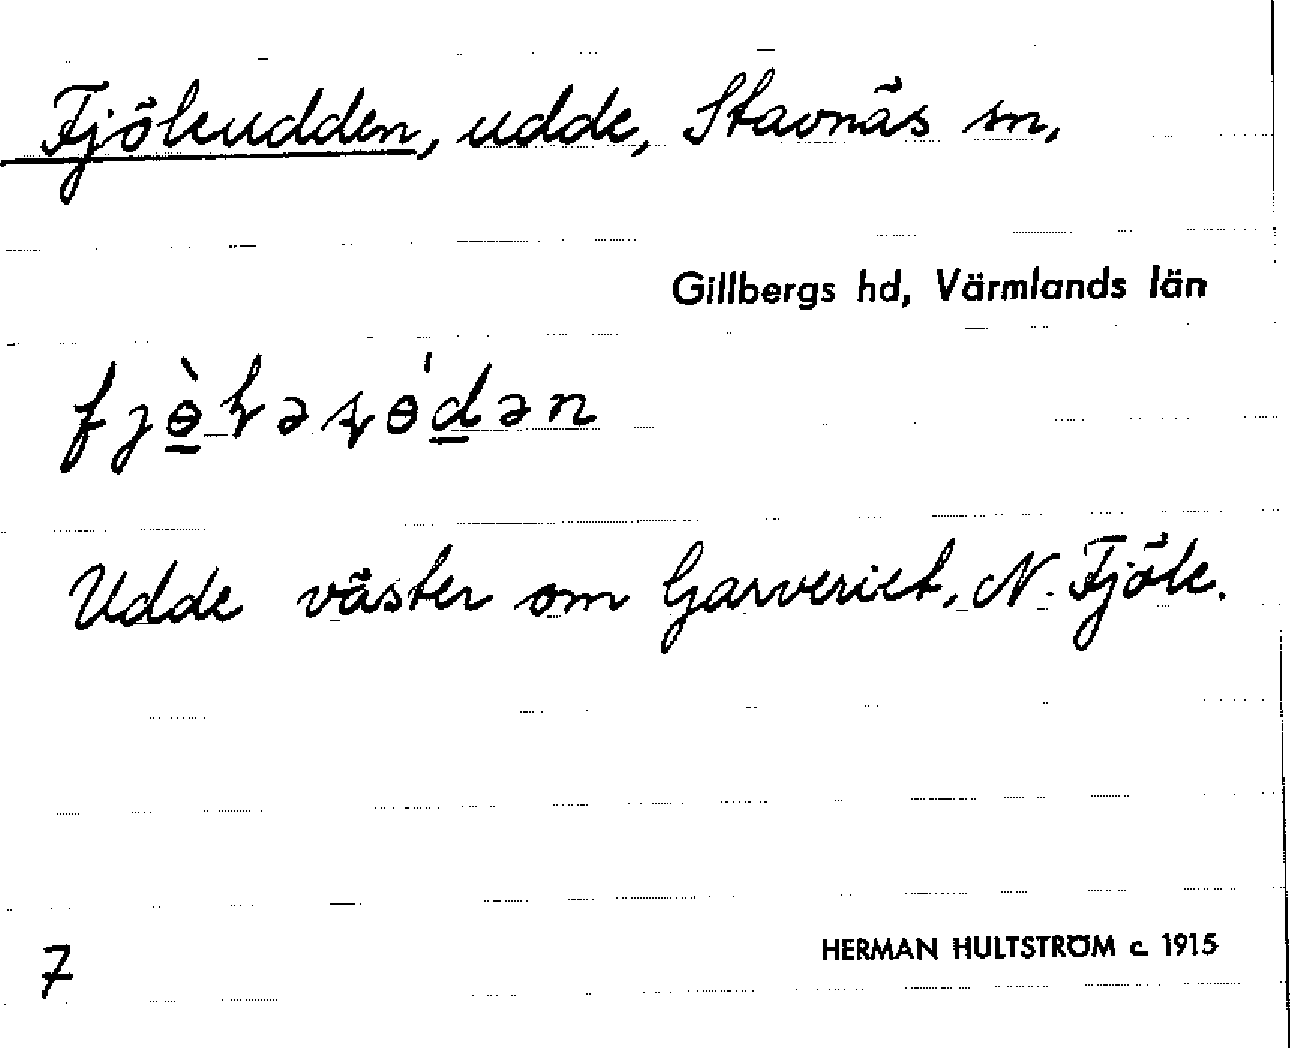 Fjöleudden, udde, Stavnäs sn,
Gillbergs hd, Värmlands län
Udde väster om Garveriet, N. Fjöle.
7
HERMAN HULTSTRÖM c. 1915